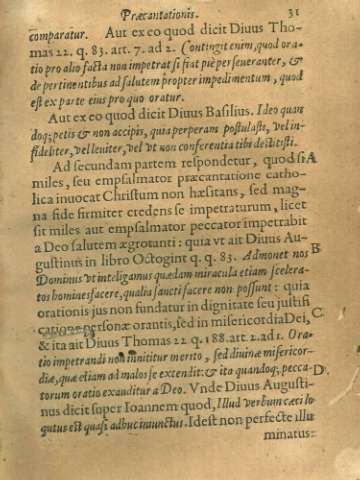 Præcantationis. 31
comparatur. Aut ex eo quod dicit Diuus Tho-
mas 22. q. 83. art. 7. ad 2. Contingit enim, quod ora-
tio pro alio facta non impetrat si fiat pie perseueranter, &
de pertinentibus ad salutem propter impedimentum, quod
est ex parte eius pro quo oratur.
Aut ex eo quod dicit Diuus Basilius. Ideo quan
doq; petis & non accipis, quia perperam postulaste, vel in-
fideliter, vel leuiter, vel vt non conferentia tibi destitisti.
Ad secundam partem respondetur, quod si A
miles, seu empsalmator præcantatione catho-
lica inuocat Christum non hæsitans, sed mag-
na fide firmiter credens se impetraturum, licet
sit miles aut empsalmator peccator impetrabit
a Deo salutem ægrotanti: quia vt ait Diuus Au-
gustinus in libro Octogint q. q. 83. Admonet nos B
Dominus vt inteligamus quædam miracula etiam scelera-
tos homines facere, qualia sancti facere non possunt: quia
orationis jus non fundatur in dignitate seu justifi
catione personæ orantis, sed in misericordia Dei, C.
& ita ait Diuus Thomas 22. q. 188. art. 2. ad 1. Ora-
tio impetrandi non innititur merito, sed diuinæ misericor-
diæ, quæ etiam ad malos se extendit: & ita quandoq; pecca- D.
torum oratio exauditur a Deo. Vnde Diuus Augusti-
nus dicit super Ioannem quod, Illud verbum cæci lo-
qutus est quasi adhuc inunctus. Idest non perfecte illu
minatus: